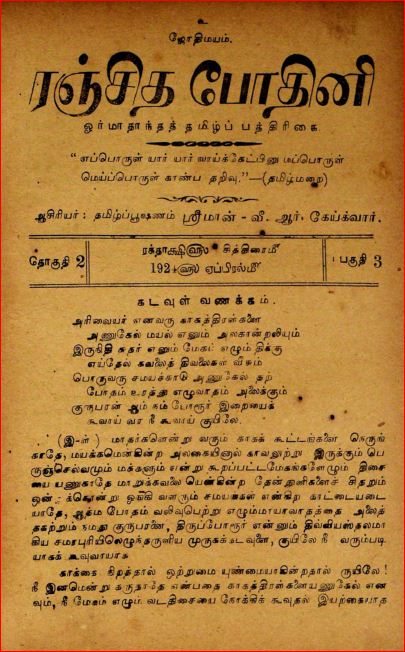 உ
ஜோதிமயம்.
ரஞ்சித போதினி
ஓர்மாதாந்தத் தமிழ்ப் பத்திரிகை.
“எப்பொருள் யார் யார் வாய்க்கேட்பினு மப்பொருள்
மெய்ப்பொருள் காண்ப தறிவு.”—(தமிழ்மறை)
ஆசிரியர்: தமிழ்ப்பூஷணம் ஸ்ரீமான்-வீ. ஆர். கேய்க்வார்.
தொகுதி 2
ரக்தாக்ஷி௵ சித்திரைமீ
192 ௵ ஏப்ரல்மீ
பகுதி 3
கடவுள் வணக்கம்.
அரிவையர் எனவரு காகத்திரள்களை
அணுகேல் மயல் எனும் அலகான்றலியும்
இருநிதி சுதர் எனும் மேகம் எழும் திக்கு
எய்தேல் கவலைத் திவலைகள் வீசும்
பொருவரு சமயக்காடு அணுகேல் தற்
போதம் உரத்து எழுவாதம் அலைக்கும்
குருபரன் ஆம் நம் போரூர் இறையைக்
கூவாய் வர நீ கூவாய் குயிலே.
(இ-ள்) மாதர்களென்று வரும் காகக் கூட்டங்களை நெருங்
காதே, மயக்கமென்கின்ற அலகையினால் காவலுற்று இருக்கும் பெ
ருஞ்செல்வமும் மக்களும் என்று கூறப்பட்டமேகங்களெழும் திசை
யை யணுகாதே மாறுக்கவலை யென்கின்ற தேன்துளிகளைச் சிதறும்
ஒன் க்கொன்று ஒவ்வி வளரும் சமயகள் என்கிற காட்டையடை
யாதே, ஆத்ம போதம் வலிவுபெற்று எழும்மாயாவாதத்தை அலைத்
தகற்றும் நமது குருபரனை, திருப்போரூர் என்னும் திவ்வியஸ்தலமா
கிய சமரபுரியிலெழுந்தருளிய முருகக்கடவுளை, குயிலே நீ வரும்படி
யாகக் கூவுவாயாக
காக்கை நிறத்தால் ஒற்றுமை யுண்மையாகின்றதால் குயிலே!
நீ இனமென்று கருதாதே என்பதை காகத்திரள்களையணுகேல் என
வும், நீ மேகம் எழும் வடதிசையை நோக்கிக் கூவுதல் இயற்கையாத